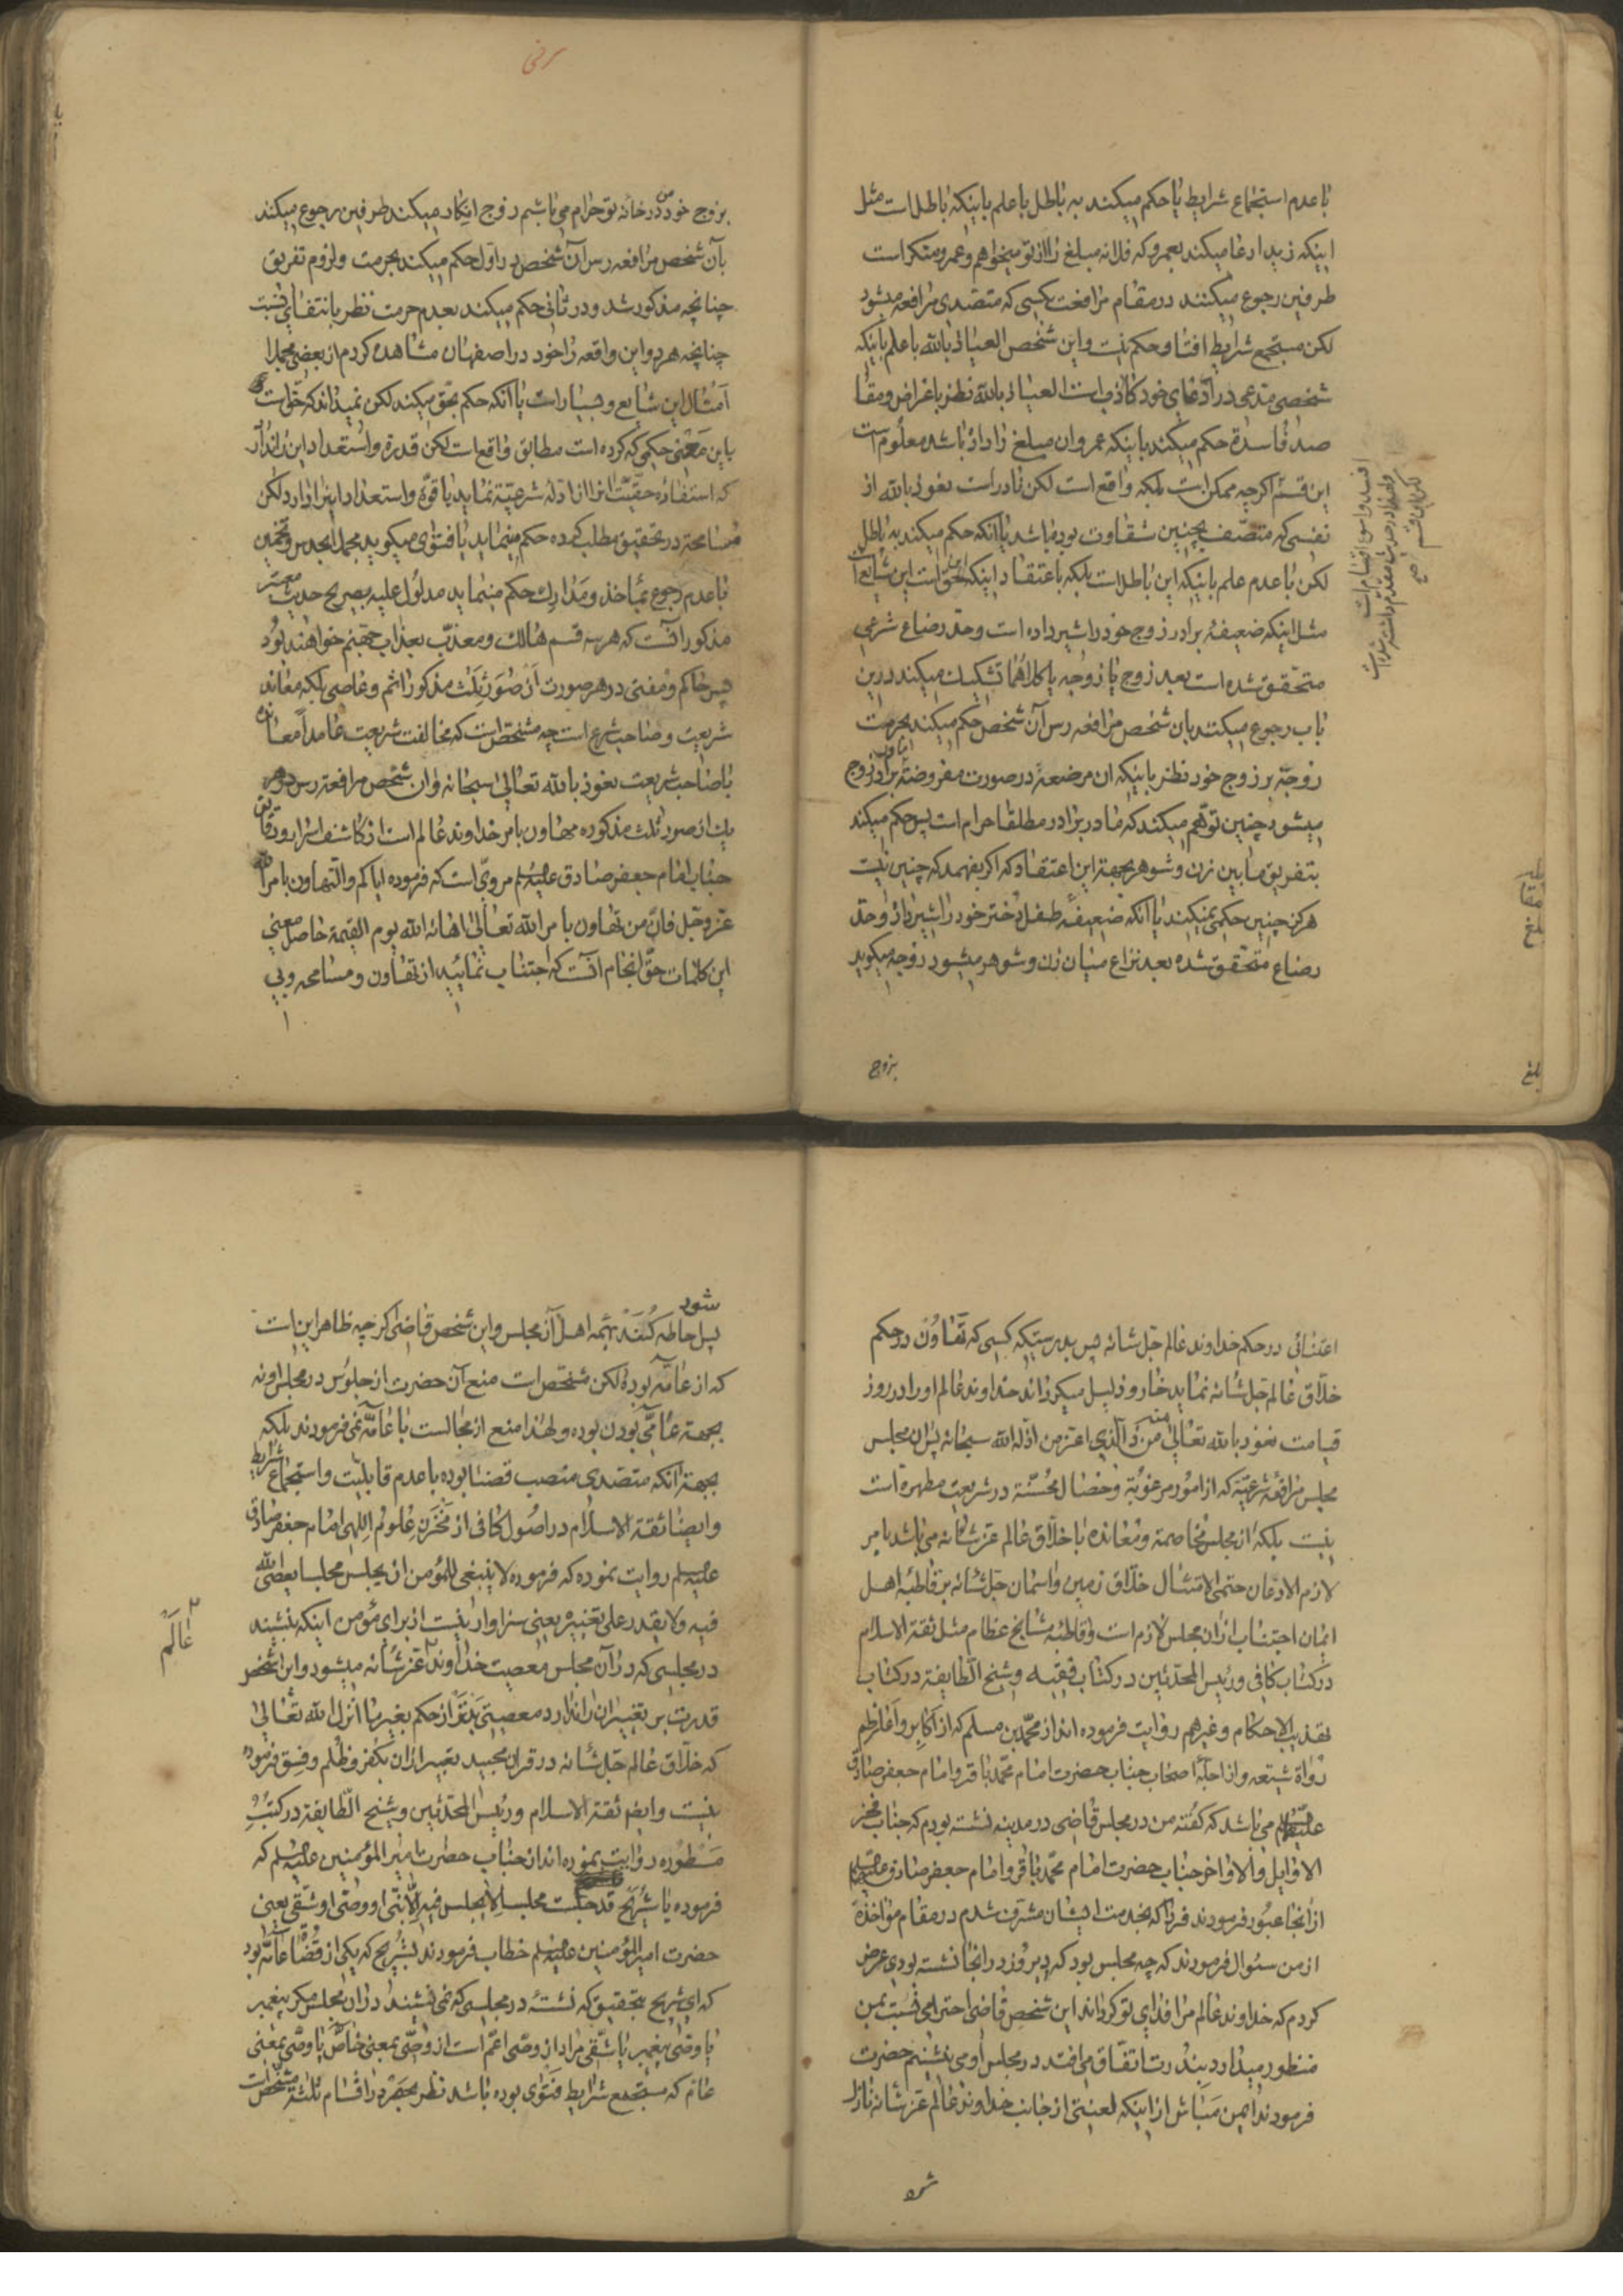 با عدم استجماع شرایط یا حکم میکند به باطل با علم باینکه باطلات مثل
اینکه زید ادعا میکند بعمرو که فلانه مبلغ را از تو میخواهم و عمرو منکر است
طرفین رجوع میکنند در مقام مرافعت بکسی که متصدی مرافعه میشود
لکن مستجمع شرایط افتا و حکم نیست و این شخص العیاذ بالله با علم باینکه
شخص مدعی در ادعای خود کاذب است العیاذ بالله نظر باغراض و مقا
صد فاسدة حکم میکند باینکه عمرو ان مبلغ را دار باشد معلوم است
این قسم اکرچه ممکن است بلکه واقع است لکن نادر است نعوذ بالله از
نفسی که متصف بچنین شقاوت بوده باشد یا آنکه حکم میکند به باطل
لکن با عدم علم باینکه این باطلات بلکه باعتقاد اینکه حق است این شایع است
مثل اینکه ضعیفهٔ برادر زوج خود را شیر داده است و حد رضاع شرعی
متحقق شده است بعد زوج یا زوجه یا کلاهما تشکیک میکند در این
باب رجوع میکنند بان شخص مرافعه رس آن شخص حکم میکند بحرمت
زوجه بر زوج خود نظر باینکه ان مرضعه در صورت مفروضه مادر برادر زوج
میشود چنین توهم میکند که مادر برادر مطلقا حرام است پس حکم میکند
بتفریق مابین زن و شوهر بجهة این اعتقاد که اکر بفهمد که چنین نیست
هرکز چنین حکمی نمیکند یا آنکه ضعیفه طفل دختر خود را شیر داد و حد
رضاع متحقق شده بعد نزاع میان زن و شوهر میشود زوجه میکوید
بزوج
بلغ
بزوج خود من در خانه تو حرام می باشم زوج انکار میکند طرفین رجوع میکند
بآن شخص مرافعه رس آن شخص در اول حکم میکند بحرمت و لزوم تفریق
چنانچه مذکور شد و در ثانی حکم میکند بعدم حرمت نظر بانتفای نسبت
چنانچه هر دو این واقعه را خود در اصفهان مشاهده کردم از بعضی مجملا
امثال این شایع و بسیار است یا آنکه حکم بحق میکند لکن نمیداند که حق است
باین معنی حکمی که کرده است مطابق واقع است لکن قدرة و استعداد این ندارد
که استفاده حقیت انرا از ادلهٔ شرعیّة نماید یا قوّة و استعداد اینرا دارد لکن
مسامحة در تحقیق مطلب کرده حکم مینماید یا فتوی میکوید مجملا بحدس و تخمین
با عدم رجوع بمأخذ و مدارک حکم مینماید مدلول علیه بصریح حدیث معتبر
مذکور انست که هر سه قسم هالک و معذب بعذاب جهنم خواهند بود
پس حاکم و مفتی در هر صورت از صور ثلث مذکور اثم و عاصی بلکه معاند
شریعت و صاحب شرع است چه مشخص است که مخالفت شریعت عامدا معانده
با صاحب شریعت نعوذ بالله تعالی سبحانه و ان شخص مرافعه رس در هر
یک از صور ثلث مذکوره متهاون بامر خداوند عالم است از کاشف اسرار و دقایق
جناب امام جعفر صادق علیه السلم مرویّ است که فرموده ایاکم والتهاون بامر الله
عز وجل فان من تهاون بامر الله تعالی اهانه الله یوم القیمة حاصل معنی
این کلمات حق انجام انست که اجتناب نمائید از تهاون و مسامحه و بی
اعتنائی در حکم خداوند عالم جل شانه پس بدرستیکه کسی که تهاون در حکم
خلّاق عالم جل شانه نماید خار و ذلیل میکرداند خداوند عالم او را در روز
قیامت نعوذ بالله تعالی منه من ذا الذی اعتز من اذله الله سبحانه پس ان مجلس
مجلس مرافعهٔ شرعیه که از امور مرغوبة و خصال محسّنة در شریعت مطهره است
نیست بلکه از مجلس مخاصمة و معانده با خلّاق عالم عز شانه می باشد بامر
لازم الاذعان حتمی الامتثال خلّاق زمین و اسمان جل شانه بر قاطبهٔ اهل
ایمان اجتناب از ان مجلس لازم است و قاطبه مشایخ عظام مثل ثقة الاسلام
در کتاب کافی و رئیس المحدثین در کتاب فقیه و شیخ الطایفة در کتاب
تهذیب الاحکام و غیرهم روایت فرموده اند از محمد بن مسلم که از اکابر و اعاظم
رواة شیعه و از اجلّهٔ اصحاب جناب حضرت امام محمد باقر و امام جعفر صادق
علیهما السلم می باشد که کفته من در مجلس قاضی در مدینه نشسته بودم که جناب مفخر
الاوایل و الاواخر جناب حضرت امام محمد باقر و امام جعفر صادق علیهما السلم
از انجا عبور فرمودند فردا که بخدمت ایشان مشرف شدم در مقام مؤاخذة
از من سئوال فرمودند که چه مجلس بود که دیروز در انجا نشسته بودی عرض
کردم که خداوند عالم مرا فدای تو کرداند این شخص قاضی احترامی نسبت بمن
منظور میدارد بندرت اتفاق می افتد در مجلس او می نشینم حضرت
فرمودند ایمن مباش از اینکه لعنتی از جانب خداوند عالم عز شانه نازل
شود
شود
پس احاطه کند بتمه اهل آن مجلس و این شخص قاضی اکرچه ظاهر این است
که از عامّه بوده لکن مشخص است منع آن حضرت از جلوس در مجلس او نه
بجهة عامّی بودن بوده و لهذا منع از مجالست با عامّه نمی فرمودند بلکه
بجهة آنکه متصدی منصب قضا بوده با عدم قابلیت و استجماع شرایط
و ایضا ثقة الاسلام در اصول کافی از مخزن علوم الهی امام جعفر صادق
علیه السلم روایت نموده که فرموده لا ینبغی للمؤمن ان یجلس مجلسا یعصی الله
فیه ولا یقدر علی تغییره یعنی سزاوار نیست از برای مؤمن اینکه بنشیند
در مجلسی که در آن مجلس معصیت خداوند عالم عز شانه میشود و این شخص
قدرت بر تغییر ان را ندارد معصیتی بدتر از حکم بغیر ما انزل الله تعالی
که خلّاق عالم جل شانه در قران مجید تعبیر از ان بکفر و ظلم و فسق فرموده
نیست و ایضا ثقة الاسلام و رئیس المحدثین و شیخ الطایفة در کتب
مسطوره روایت نموده اند از جناب حضرت امیر المؤمنین علیه السلم که
فرموده یا شریح قد جلست مجلسا لا یجلس فیه الا نبی او وصی او شقی یعنی
حضرت امیر المؤمنین علیه السلم خطاب فرمودند بشریح که یکی از قضاة عامّه بود
که ای شریح بتحقیق که نشستهٔ در مجلسی که نمی نشیند در ان مجلس مکر پیغمبر
یا وصی پیغمبر یا شقی مراد از وصی اعم است از وصی بمعنی خاص یا وصی بمعنی
عام که مستجمع شرایط فتوی بوده باشد نظر بحصر در اقسام ثلثة مشخص است
عالم